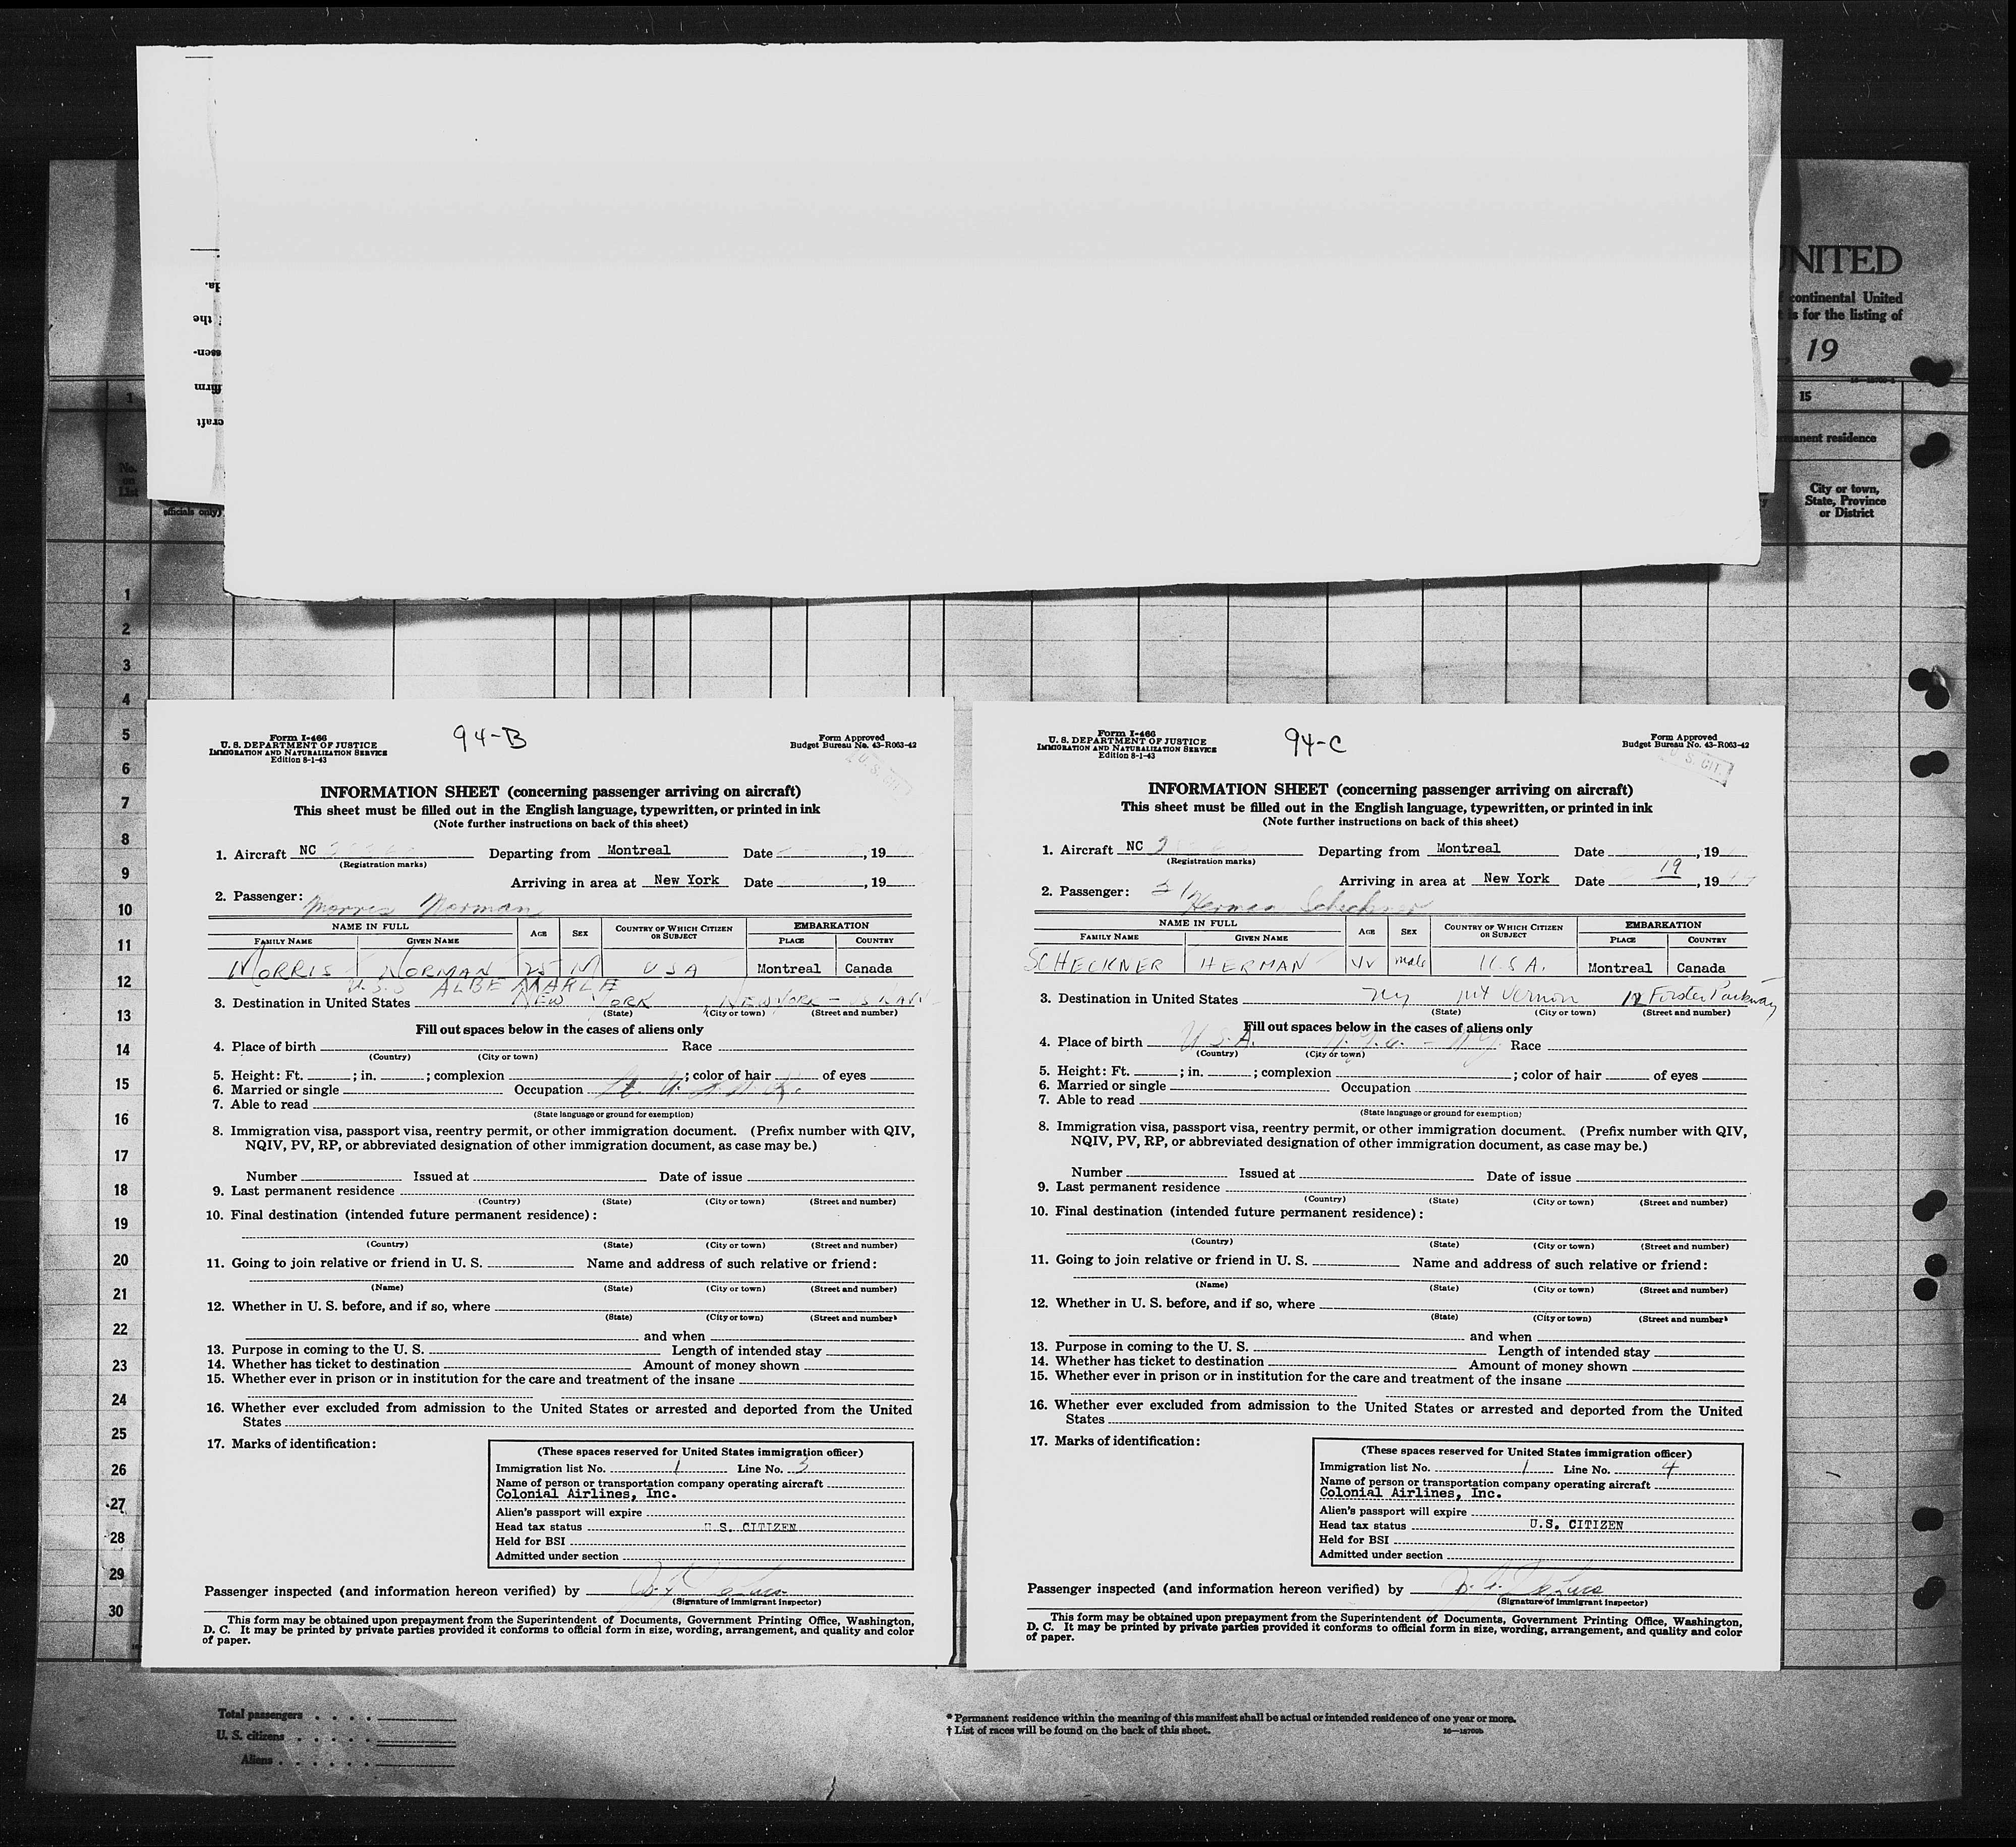 UNITED
continental United
is for the listing of
, 19
1
15
permanent residence
No.
on
List
officials only)
City or town,
State, Province
or District
1
2
3
4
5
6
7
8
9
10
11
12
13
14
15
16
17
18
19
20
21
22
23
24
25
26
27
28
29
30
Form I-466
U. S. DEPARTMENT OF JUSTICE
IMMIGRATION AND NATURALIZATION SERVICE
Edition 8-1-43
94-B
Form Approved
Budget Bureau No. 43-R063-42
U. S. CIT.
INFORMATION SHEET (concerning passenger arriving on aircraft)
This sheet must be filled out in the English language, typewritten, or printed in ink
(Note further instructions on back of this sheet)
1. Aircraft NC Departing from Montreal Date , 19
(Registration marks)
Arriving in area at New York Date , 19
2. Passenger: Morris Norman
NAME IN FULL AGE SEX COUNTRY OF WHICH CITIZEN OR SUBJECT EMBARKATION
FAMILY NAME GIVEN NAME PLACE COUNTRY
MORRIS NORMAN 25 M USA Montreal Canada
U.S.S ALBEMARLE
3. Destination in United States NEW YORK, NEW YORK - US NAVY
(State) (City or town) (Street and number)
Fill out spaces below in the cases of aliens only
4. Place of birth Race
(Country) (City or town)
5. Height: Ft. ; in. ; complexion ; color of hair of eyes
6. Married or single Occupation
7. Able to read
(State language or ground for exemption)
8. Immigration visa, passport visa, reentry permit, or other immigration document. (Prefix number with QIV,
NQIV, PV, RP, or abbreviated designation of other immigration document, as case may be.)
Number Issued at Date of issue
9. Last permanent residence
(Country) (State) (City or town) (Street and number)
10. Final destination (intended future permanent residence):
(Country) (State) (City or town) (Street and number)
11. Going to join relative or friend in U. S. Name and address of such relative or friend:
(Name) (State) (City or town) (Street and number)
12. Whether in U. S. before, and if so, where
(State) (City or town) (Street and number)
and when
13. Purpose in coming to the U. S. Length of intended stay
14. Whether has ticket to destination Amount of money shown
15. Whether ever in prison or in institution for the care and treatment of the insane
16. Whether ever excluded from admission to the United States or arrested and deported from the United
States
17. Marks of identification:
(These spaces reserved for United States immigration officer)
Immigration list No. 1 Line No. 3
Name of person or transportation company operating aircraft
Colonial Airlines, Inc.
Alien's passport will expire
Head tax status U.S. CITIZEN
Held for BSI
Admitted under section
Passenger inspected (and information hereon verified) by
(Signature of immigrant inspector)
This form may be obtained upon prepayment from the Superintendent of Documents, Government Printing Office, Washington,
D. C. It may be printed by private parties provided it conforms to official form in size, wording, arrangement, and quality and color
of paper.
Form I-466
U. S. DEPARTMENT OF JUSTICE
IMMIGRATION AND NATURALIZATION SERVICE
Edition 8-1-43
94-C
Form Approved
Budget Bureau No. 43-R063-42
U. S. CIT.
INFORMATION SHEET (concerning passenger arriving on aircraft)
This sheet must be filled out in the English language, typewritten, or printed in ink
(Note further instructions on back of this sheet)
1. Aircraft NC Departing from Montreal Date , 19
(Registration marks)
Arriving in area at New York Date 19 , 19
2. Passenger: Herman Scheckner
NAME IN FULL AGE SEX COUNTRY OF WHICH CITIZEN OR SUBJECT EMBARKATION
FAMILY NAME GIVEN NAME PLACE COUNTRY
SCHECKNER HERMAN 44 male U.S.A. Montreal Canada
3. Destination in United States NY Mt Vernon 12 Forster Parkway
(State) (City or town) (Street and number)
Fill out spaces below in the cases of aliens only
4. Place of birth U.S.A. N.Y.C. - N.Y. Race
(Country) (City or town)
5. Height: Ft. ; in. ; complexion ; color of hair of eyes
6. Married or single Occupation
7. Able to read
(State language or ground for exemption)
8. Immigration visa, passport visa, reentry permit, or other immigration document. (Prefix number with QIV,
NQIV, PV, RP, or abbreviated designation of other immigration document, as case may be.)
Number Issued at Date of issue
9. Last permanent residence
(Country) (State) (City or town) (Street and number)
10. Final destination (intended future permanent residence):
(Country) (State) (City or town) (Street and number)
11. Going to join relative or friend in U. S. Name and address of such relative or friend:
(Name) (State) (City or town) (Street and number)
12. Whether in U. S. before, and if so, where
(State) (City or town) (Street and number)
and when
13. Purpose in coming to the U. S. Length of intended stay
14. Whether has ticket to destination Amount of money shown
15. Whether ever in prison or in institution for the care and treatment of the insane
16. Whether ever excluded from admission to the United States or arrested and deported from the United
States
17. Marks of identification:
(These spaces reserved for United States immigration officer)
Immigration list No. 1 Line No. 4
Name of person or transportation company operating aircraft
Colonial Airlines, Inc.
Alien's passport will expire
Head tax status U.S. CITIZEN
Held for BSI
Admitted under section
Passenger inspected (and information hereon verified) by
(Signature of immigrant inspector)
This form may be obtained upon prepayment from the Superintendent of Documents, Government Printing Office, Washington,
D. C. It may be printed by private parties provided it conforms to official form in size, wording, arrangement, and quality and color
of paper.
Total passengers . . . .
U. S. citizens . . . . .
Aliens . . . . . .
* Permanent residence within the meaning of this manifest shall be actual or intended residence of one year or more.
† List of races will be found on the back of this sheet.